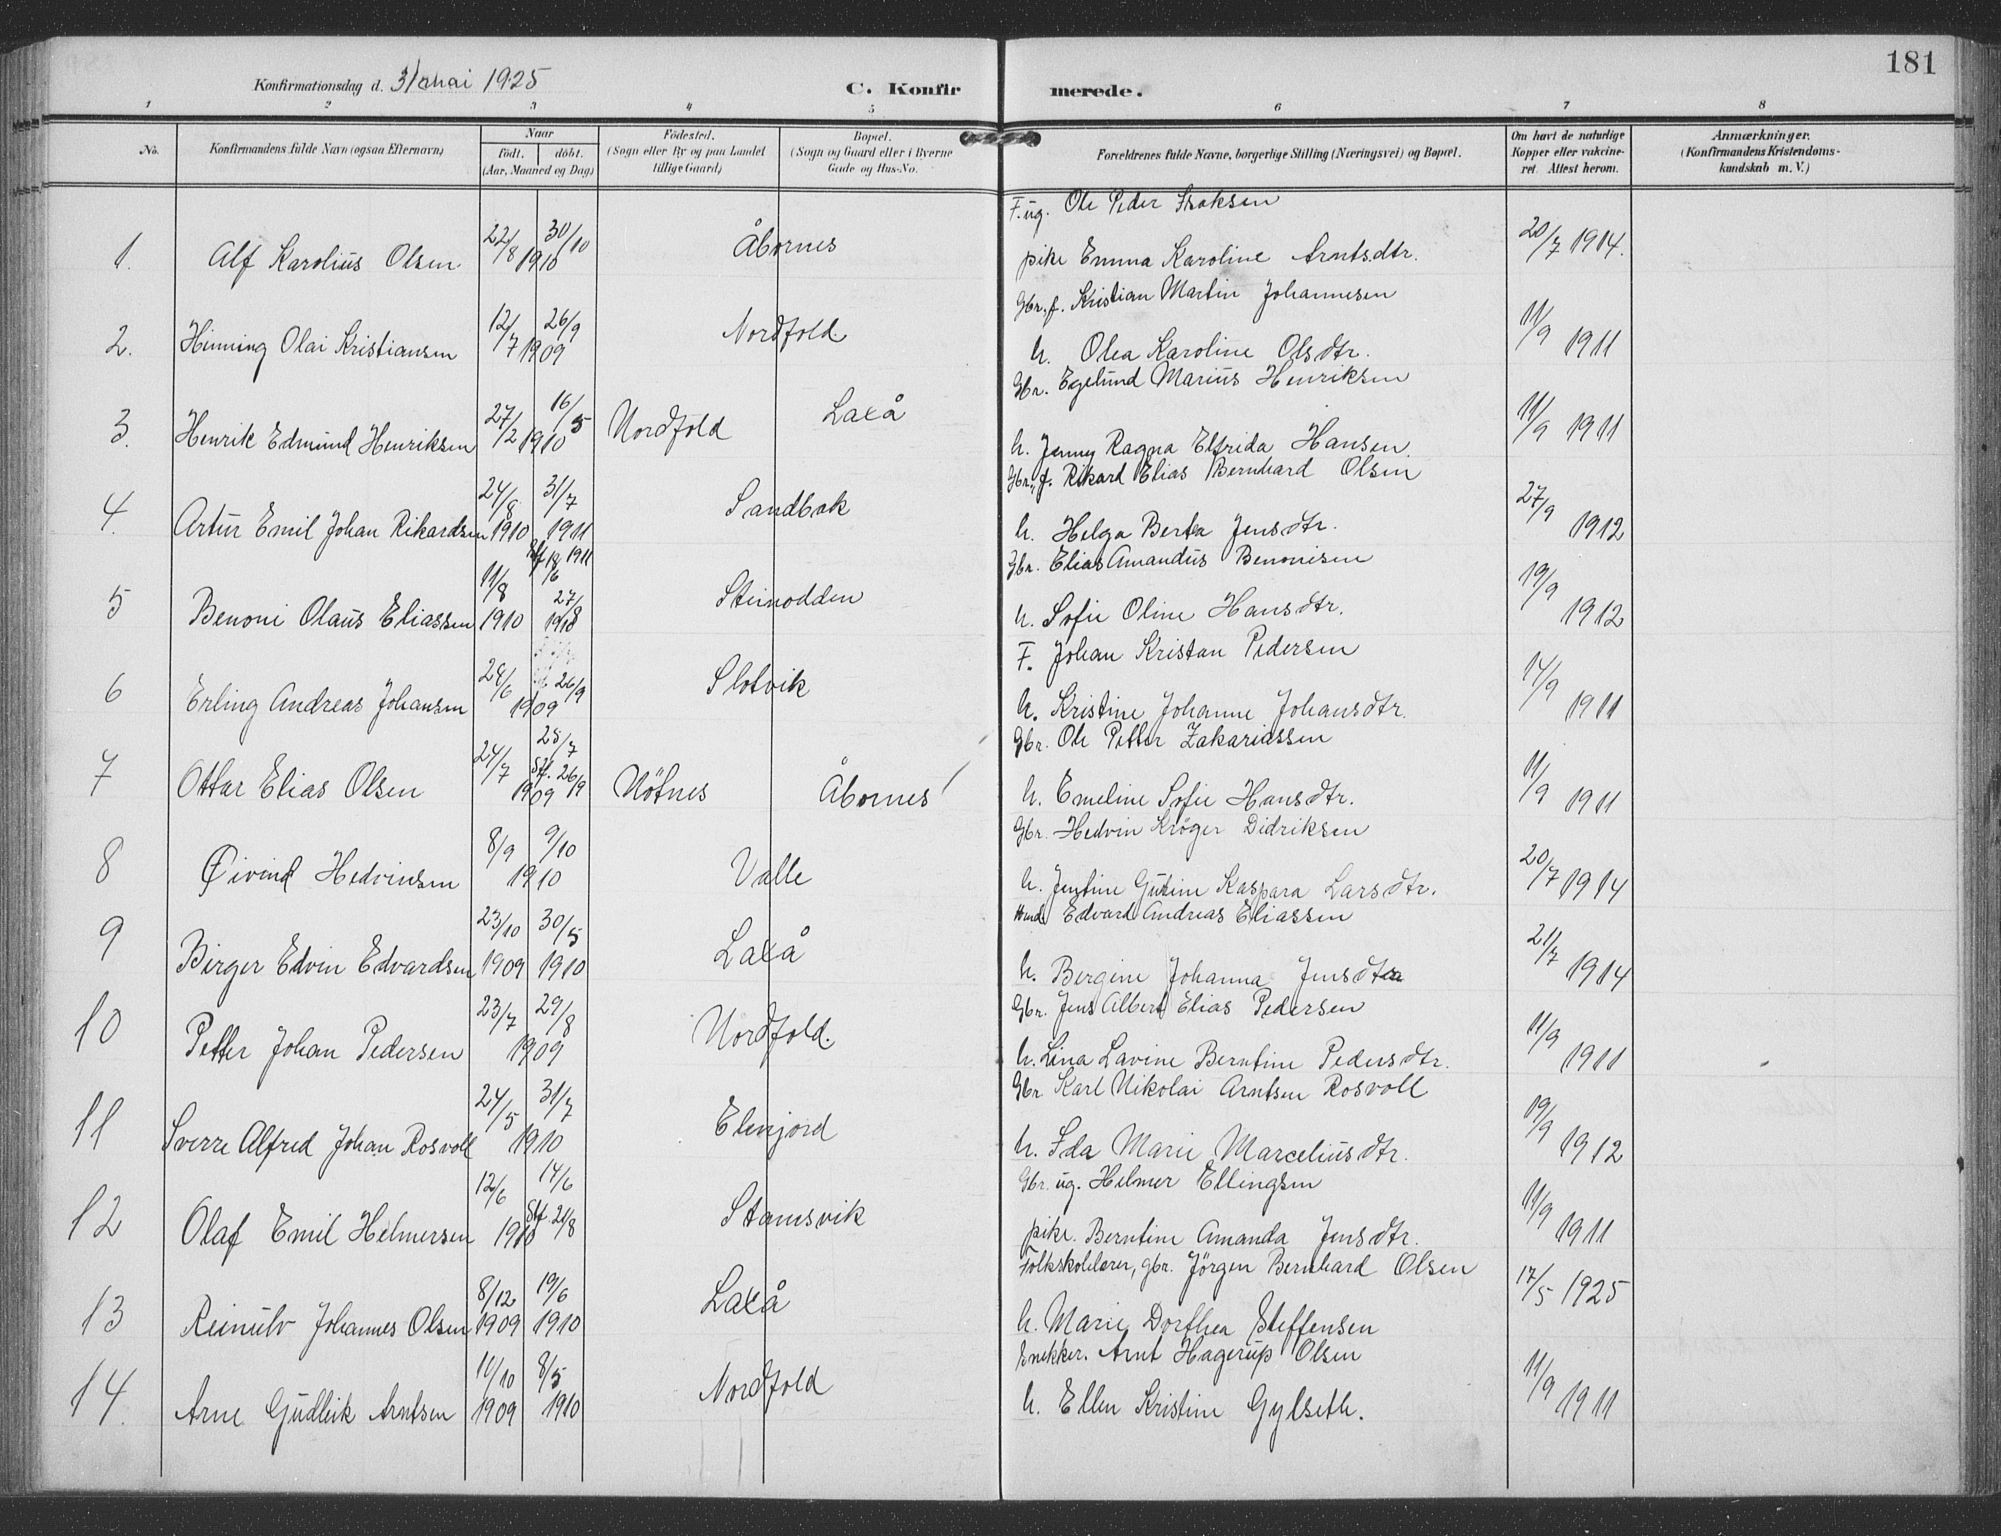 181
Konfirmationsdag d. 31 mai 1925
C. Konfirmerede.
1 2 3 4 5 6 7 8
No.
Konfirmandens fulde Navn (ogsaa Efternavn)
Naar
født. døbt.
(Aar, Maaned og Dag)
Födested.
(Sogn eller By og paa Landet
tillige Gaard)
Bopæl.
(Sogn og Gaard eller i Byerne
Gade og Hus-No.
Forældrenes fulde Navne, borgerlige Stilling (Næringsvei) og Bopæl.
Om havt de naturlige
Kopper eller vakcine-
ret. Attest herom.
Anmærkninger.
(Konfirmandens Kristendoms-
kundskab m. V.)
F. ug. Ole Peder
1. Alf Karolius Olsen 22/8 1910 30/10 Åbornes pike Emma Karoline Arntsdtr. 20/7 1914.
Gbr. f. Kristian Martin Johannesen
2. Henning Olai Kristiansen 12/7 1909 26/9 Nordfold. h. Olea Karoline Olsdtr. 11/9 1911
Gbr. Egelund Marius Henriksen
3. Henrik Edmund Henriksen 27/2 1910 16/5 Nordfold Laxå h. Jenny Ragna Elfrida Hansen. 11/9 1911
Gbr., f. Rikard Elias Bernhard Olsen
4. Artur Emil Johan Rikardsen 24/8 1910 31/7 1911 Sandbak h. Helga Berta Jensdtr. 27/9 1912
Gbr. Elias Amandus Benonisen
5 Benoni Olaus Eliassen 11/8 1910 27/8 Steinodden h. Sofie Oline Hansdtr. 19/9 1912
F. Johan Kristan Pedersen
6 Erling Andreas Johansen 28/6 1909 26/9 Slotvik h. Kristine Johanne Johansdtr. 14/9 1911
Gbr. Ole Petter Zakariassen
7 Ottar Elias Olsen 24/7 1909 25/7 Stf. 26/9 Nöfnes Åbornes h. Emeline Sofie Hansdtr. 11/9 1911
Gbr. Hedvin Kröger Didriksen
8 Øivind Hedvinsen 8/9 1910 9/10 Valle h. Jentine Gurine Kaspara Larsdtr. 20/7 1914
Edvard Andreas Eliassen
9 Birger Edvin Edvardsen 23/10 1909 30/5 1910 Laxå h. Bergine Johanna Jensdtr 21/7 1914
Gbr. Jens Albert Elias Pedersen
10 Petter Johan Pedersen 23/7 1909 29/8 Nordfold. h. Lina Lavine Berntine Pedersdtr. 11/9 1911
Gbr Karl Nikolai Arntsen Rosvoll
11 Sverre Alfred Johan Rosvoll 24/5 1910 31/7 Elvejord h. Ida Marie Marceliusdtr. 19/9 1912
Gbr. ug. Helmer Ellingsen
12 Olaf Emil Helmersen 12/6 1910 14/6 Stf 21/8 Stamsvik pike. Berntine Amanda Jensdtr. 11/9 1911
Folkskolelærer, gbr. Jörgen Bernhard Olsen
13 Reinulv Johannes Olsen 8/12 1909 19/6 1910 Laxå h. Marie Dorthea Steffensen 17/5 1925
Snekker. Arnt Hagerup Olsen
14. Arne Gudleik Arntsen 10/10 1909 8/5 1910 Nordfold h. Ellen Kristine Gylseth. 11/9 1911